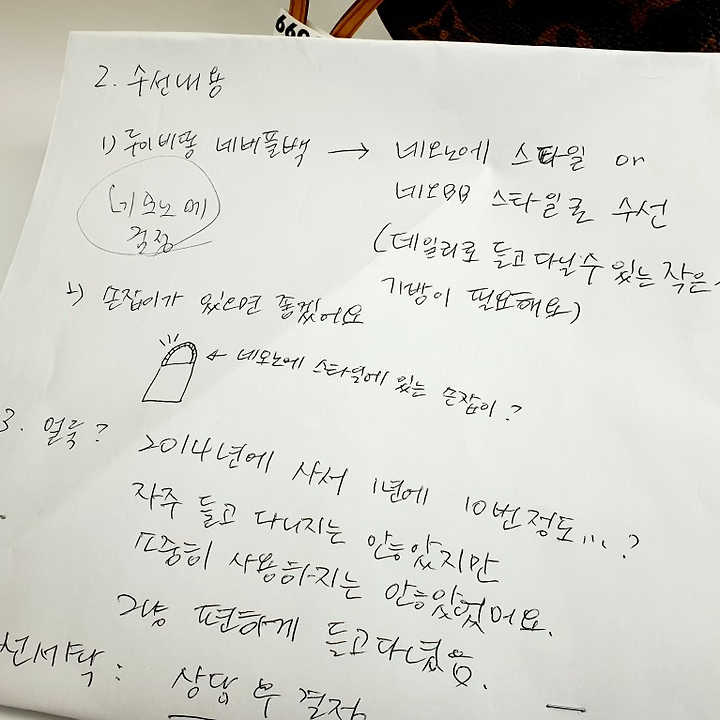 660
2. 수선내용
1) 루이비똥 네버풀백 → 네오노에 스타일 or
네오BB 스타일로 수선
(데일리로 들고 다닐 수 있는 작은
가방이 필요해요)
네오노에
결정
2) 손잡이가 있으면 좋겠어요
← 네오노에 스타일에 있는 손잡이?
3. 얼룩?
2014년에 사서 1년에 10번정도...?
자주 들고 다니지는 않았지만
소중히 사용하지는 않았었어요.
그냥 편하게 들고다녔음.
선세탁: 상담 후 결정